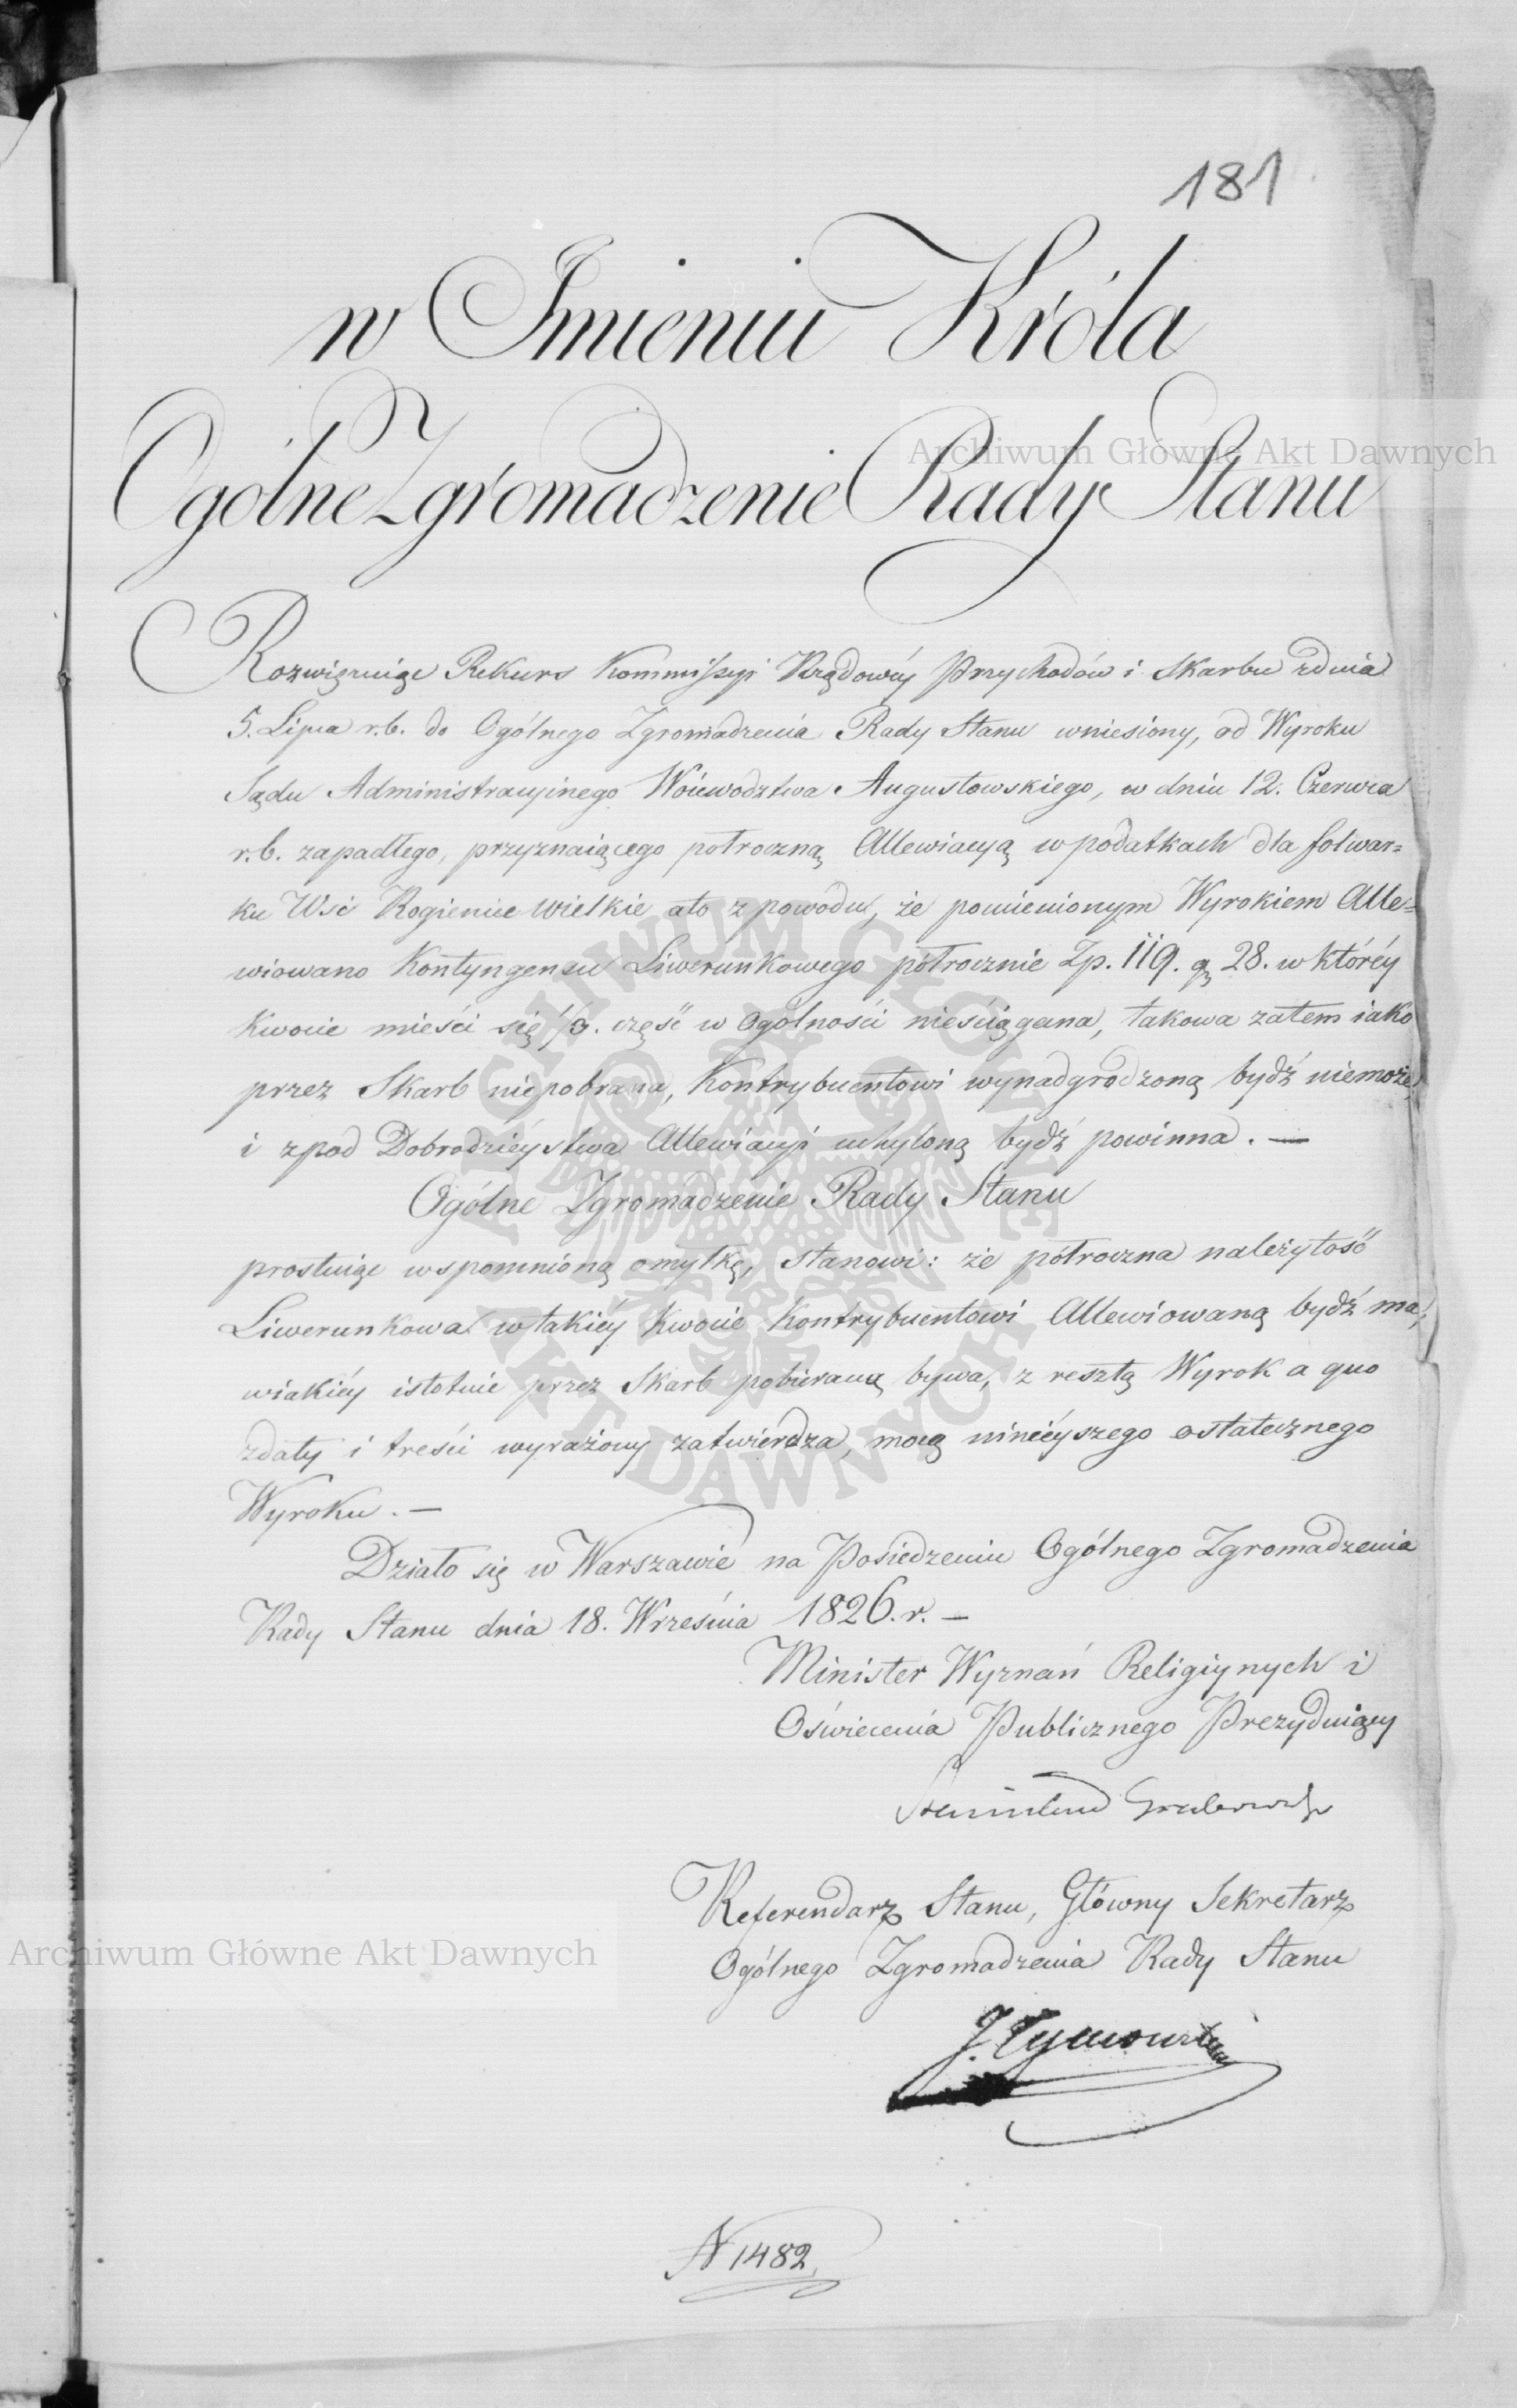 181
w Imieniu Króla
Ogólne Zgromadzenie Rady Stanu
Rozwięzuiąc Rekurs Kommissyi Rządowéy Przychodów i Skarbu zdnia
5. Lipca r.b. do Ogólnego Zgromadzenia Rady Stanu wniesiony, od Wyroku
Sądu Administracyinego Woiewodztwa Augustowskiego, w dniu 12. Czerwca
r.b. zapadłego, przyznaiącego półroczną Allewiacyą w podatkach dla folwar=
ku Wsi Rogienice Wielkie ato z powodu, że pomienionym Wyrokiem Alle=
wiowano Kontyngensu Liwerunkowego półrocznie Zp. 119. gr 28. w któréy
Kwocie mieści się część w Ogólności nieściągana, takowa zatem iako
przez Skarb niepobrana, Kontrybuentowi wynadgrodzoną bydź niemoże
i zpod Dobrodzieystwa Allewiacyi uchyloną bydź powinna. —
Ogólne Zgromadzenie Rady Stanu
prostuiąc wspomnioną omyłkę, stanowi: że półroczna należytość
Liwerunkowa w takiéy Kwocie Kontrybuentowi Allewiowaną bydź ma,
wiakiéy istotnie przez Skarb pobieraną bywa, z resztą Wyrok a quo
zdaty i treści wyrażony zatwierdza, mocą ninieyszego ostatecznego
Wyroku. —
Działo się w Warszawie na Posiedzeniu Ogólnego Zgromadzenia
Rady Stanu dnia 18. Września 1826. r. —
Minister Wyznań Religiynych i
Oświecenia Publicznego Prezyduiący
Stanisław Grabowski
Referendarz Stanu, Główny Sekretarz
Ogólnego Zgromadzenia Rady Stanu
J. Tymowski
N 1482
Archiwum Główne Akt Dawnych
Archiwum Główne Akt Dawnych
ARCHIWUM GŁÓWNE AKT DAWNYCH